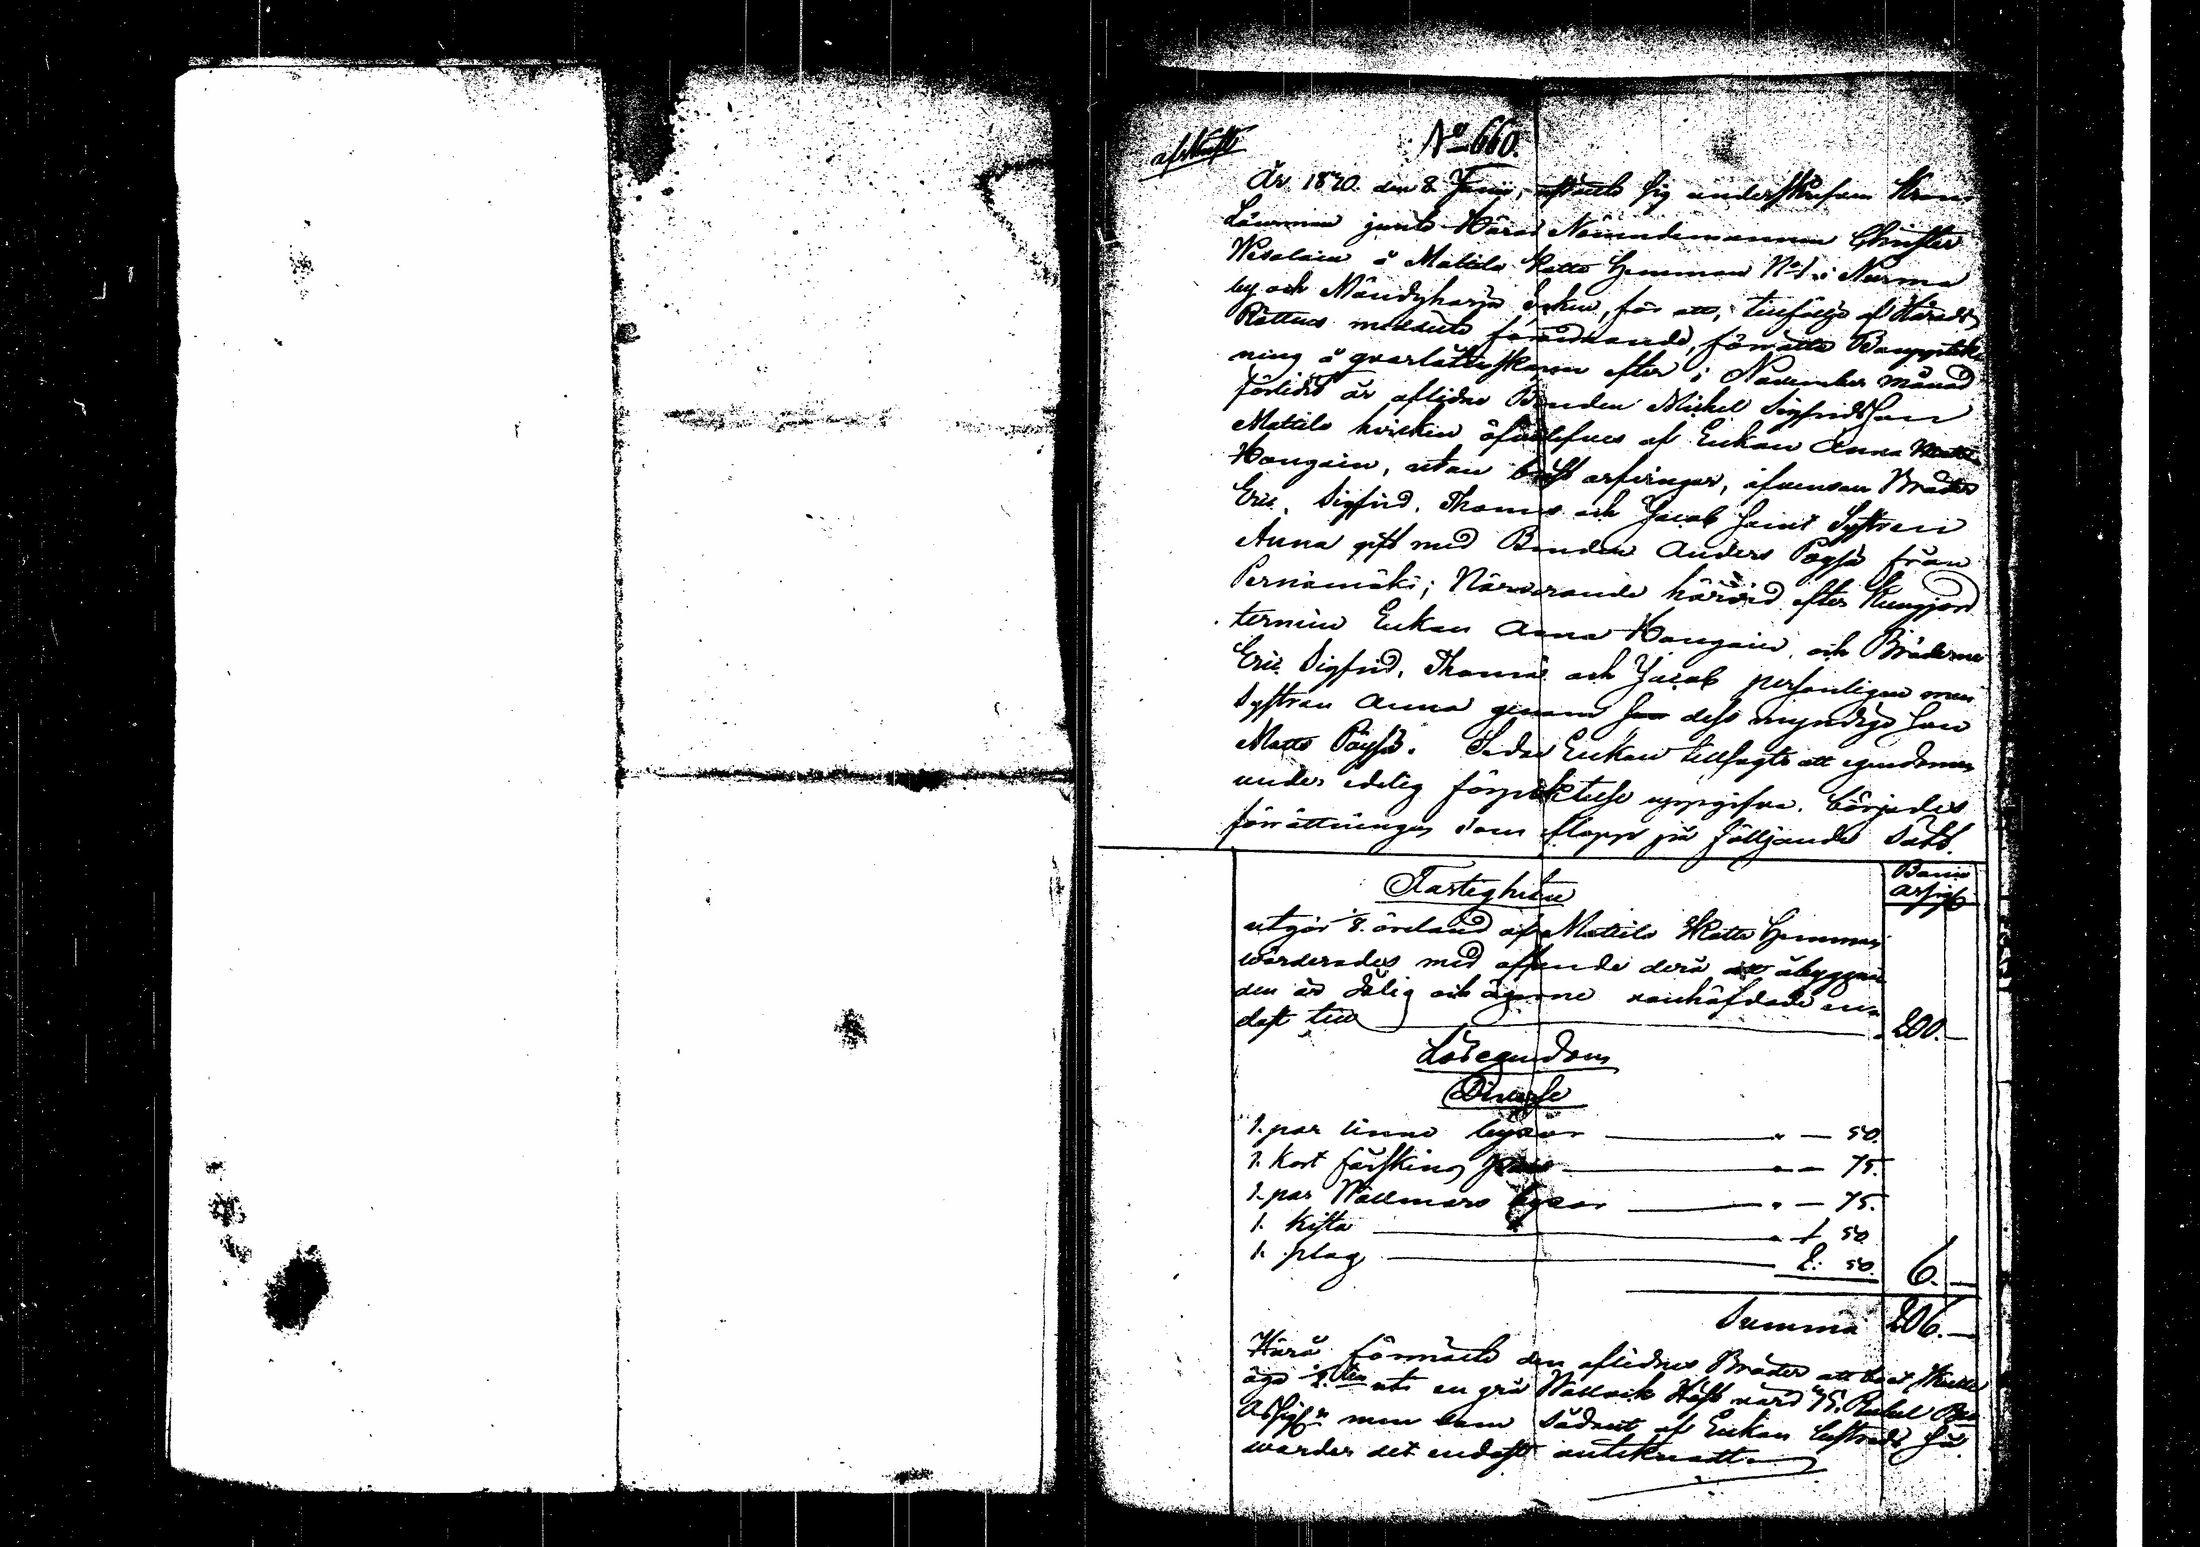 afskrift
No 660.
År 1870. den 8 Junii, instälte sig underskrifven Krono
Länsman jemte Härads Nämndemannen Christer
Wesalain å Mattila Skatte Hemman No 1. i Nurma
by och Mändyharju Socken, för att, tillfölje af Härads
Rättens meddelte förordnande, förrätta Bouppteck-
ning å qvarlåtenskapen efter i November månad
förlidet år aflidne Bonden Michel Sigfridsson
Mattila hvilken öfverlefves af Enkan Anna
Haugain, utan bröst arfvingar, äfvensom Bröder
Eric, Sigfrid, Thomas och Jacob samt Systren
Anna gift med Bonden Anders Pöysä från
Pernämäki; Närvarande härvid efter kungjord
termin Enkan Anna Haugain, och Bröderne
Eric, Sigfrid, Thomas och Jacob personligen men
Systran Anna genom dess myndige son
Matts Pöysä. Sedan Enkan tillsagts att egendomen
under edelig förpliktelse uppgifva. börjades
förrättningen som aflopp på följande Sätt.
Banco
Assig
Fastigheten
utgör 8. öreland af Mattila Skatte Hemman
värderades med afseende derå att åbyggna-
den är dålig och ägorne vanhäfdade en-
dast till 200.
Lösegendom
Diverse
1. par linne byxor " — 50.
1. kort fårskins " — 75.
1. par Wallmars byxor " — 75.
1. kista " 1 50
1. plog 2: 50. 6. —
Summa 206. —
Härå förmälte den aflidnes Bröder att boet skulle
äga en grå Wallack Häst värd 75. Rubel Bco
Assigr men som sådant af Enkan bestreds så
warder det endast antecknadt.